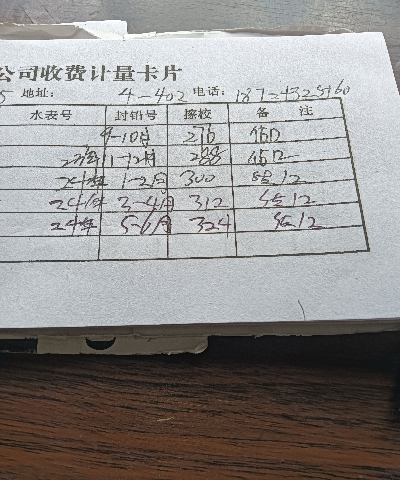 公司收费计量卡片
5 地址: 4-402 电话:
水表号 封铅号 擦校 备 注
9-10月 276
23年 11-12月 288
24年 1-2月 300 结12
24年 3-4月 312 结12
24年 5-6月 324 结12